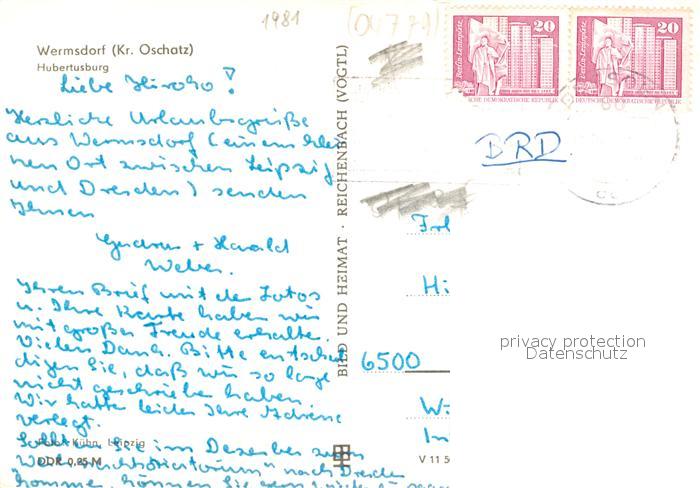 1981
(04779)
Wermsdorf (Kr. Oschatz)
Hubertusburg
Liebe Hiroko!
Herzliche Urlaubsgrüße
aus Wermsdorf (einem klei
nen Ort zwischen Leipzig
und Dresden) senden
Ihnen
Gudrun + Harald
Weber.
Ihren Brief mit den Fotos
u. Ihre Karte haben wir
mit großer Freude erhalten.
Vielen Dank. Bitte entschul
digen Sie, daß wir so lange
nicht geschrieben haben.
Wir hatten leider Ihre Adresse
verlegt.
Sollten Sie im Dezember zum
"Weihnachtsoratorium" nach Dresden
kommen, können Sie
Foto: Kühn, Leipzig
DDR 0,25 M
BILD UND HEIMAT · REICHENBACH (VOGTL)
V 11 5
20
Berlin-Leninplatz
SCHE DEMOKRATISCHE REPUBLIK
20
Berlin-Leninplatz
DEUTSCHE DEMOKRATISCHE REPUBLIK
BRD
Frl
Hi
6500
W
In
privacy protection
Datenschutz